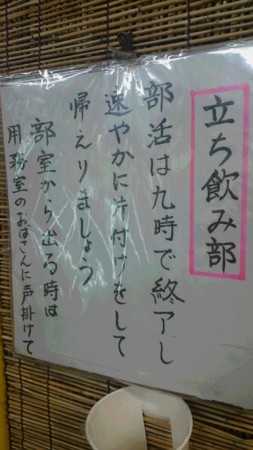 立ち飲み部
部活は九時で終アし
速やかに片付けをして
帰えりましょう
部室から出る時は
用務室のおばさんに声掛けて